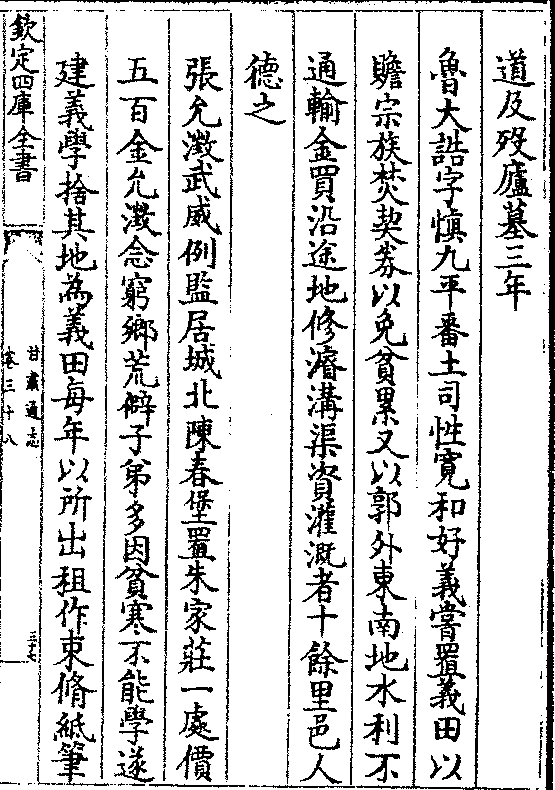 道及歿廬墓三年
魯大誥字慎九平番土司性寬和好義嘗置義田以
贍宗族焚契券以免貧累又以郭外東南地水利不
通輸金買沿途地修濬溝渠資灌溉者十餘里邑人
德之
張允瀓武威例監居城北陳春堡置朱家莊一處價
五百金允瀓念窮鄉荒僻子弟多因貧寒不能學遂
建義學捨其地為義田每年以所出租作束脩紙筆
欽定四庫全書
甘肅通志
卷三十八
三十七